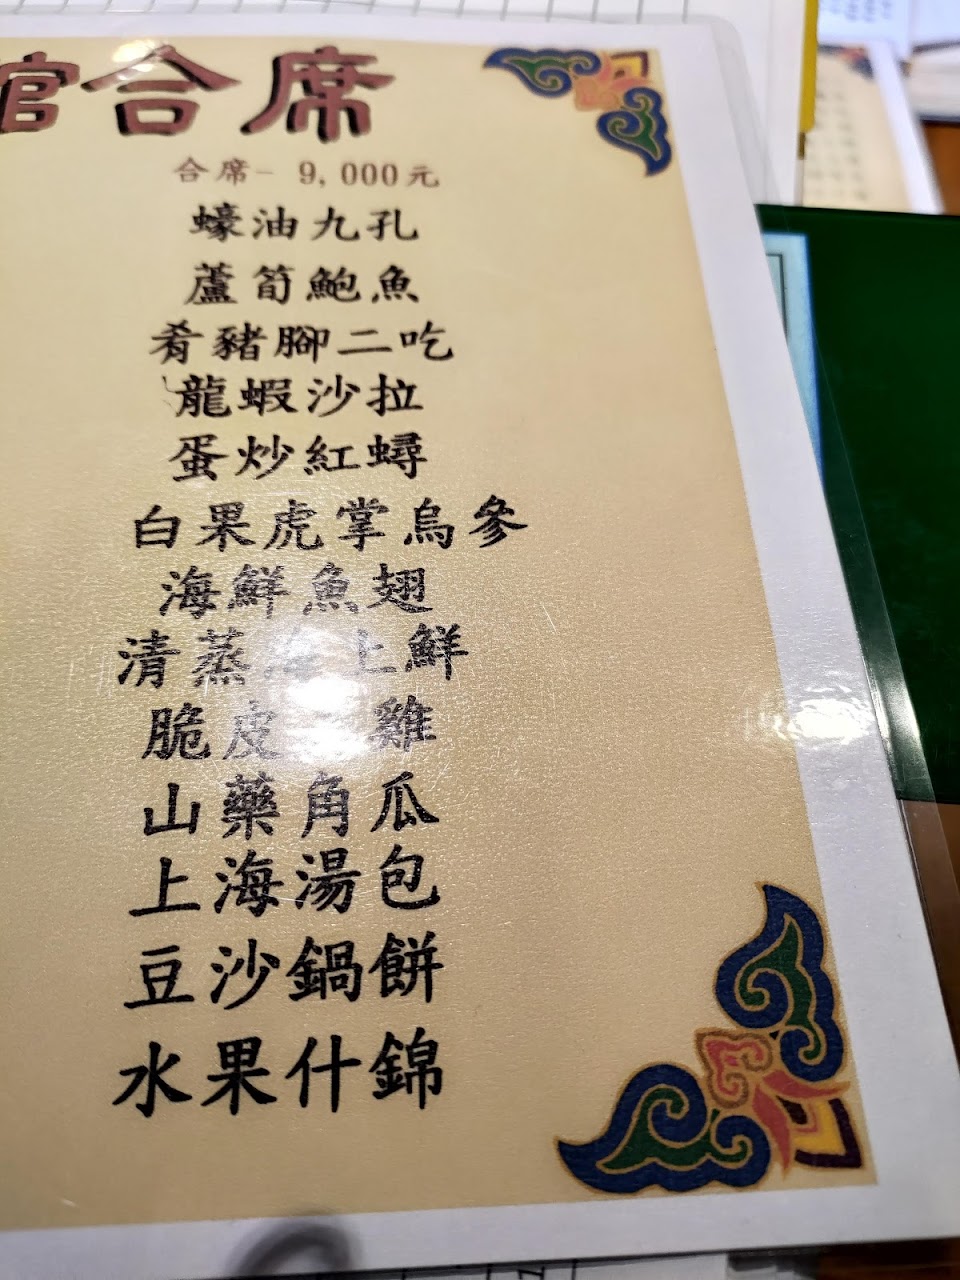 館合席
合席- 9,000元
蠔油九孔
蘆筍鮑魚
肴豬腳二吃
龍蝦沙拉
蛋炒紅蟳
白果虎掌烏參
海鮮魚翅
清蒸海上鮮
脆皮雞
山藥角瓜
上海湯包
豆沙鍋餅
水果什錦